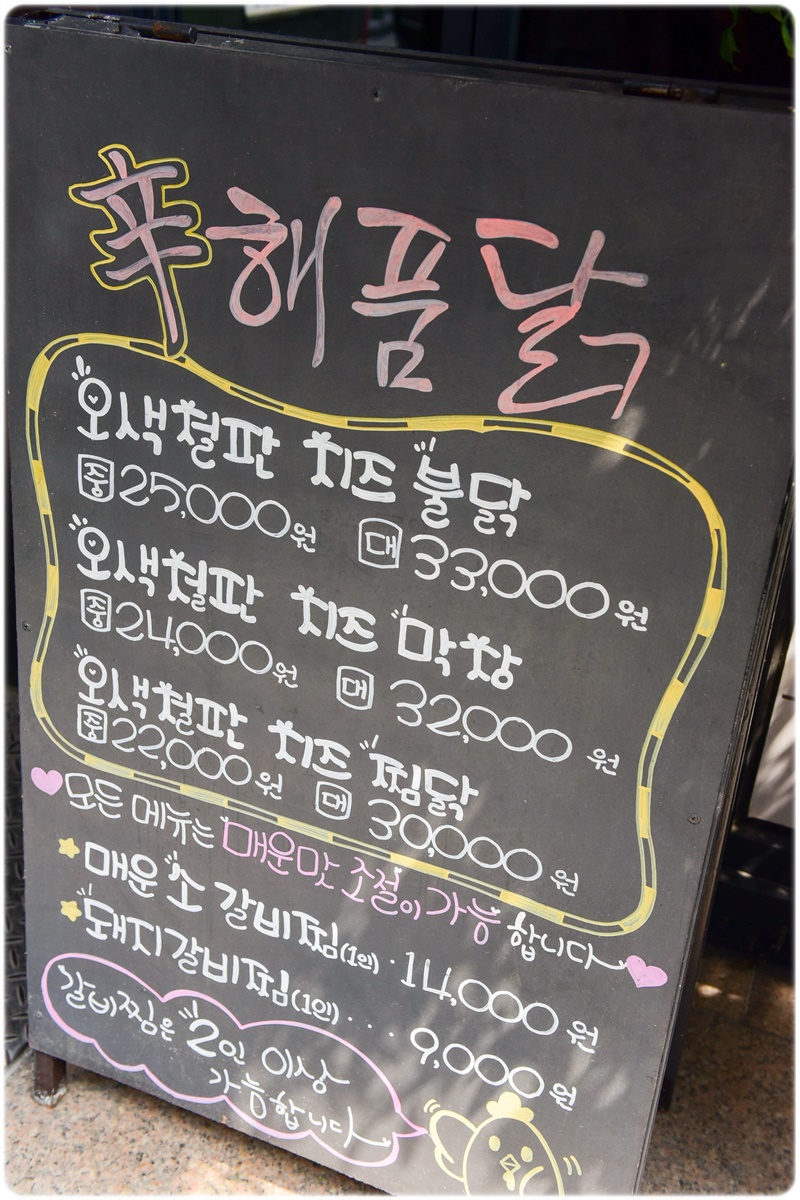 辛해품닭
오색철판 치즈 불닭
중 25,000원 대 33,000원
오색철판 치즈 막창
중 24,000원 대 32,000원
오색철판 치즈 찜닭
중 22,000원 대 30,000원
모든 메뉴는 매운맛 조절이 가능합니다~
매운 소 갈비찜(1인) · 14,000원
돼지갈비찜(1인) ... 9,000원
갈비찜은 2인 이상
가능합니다~